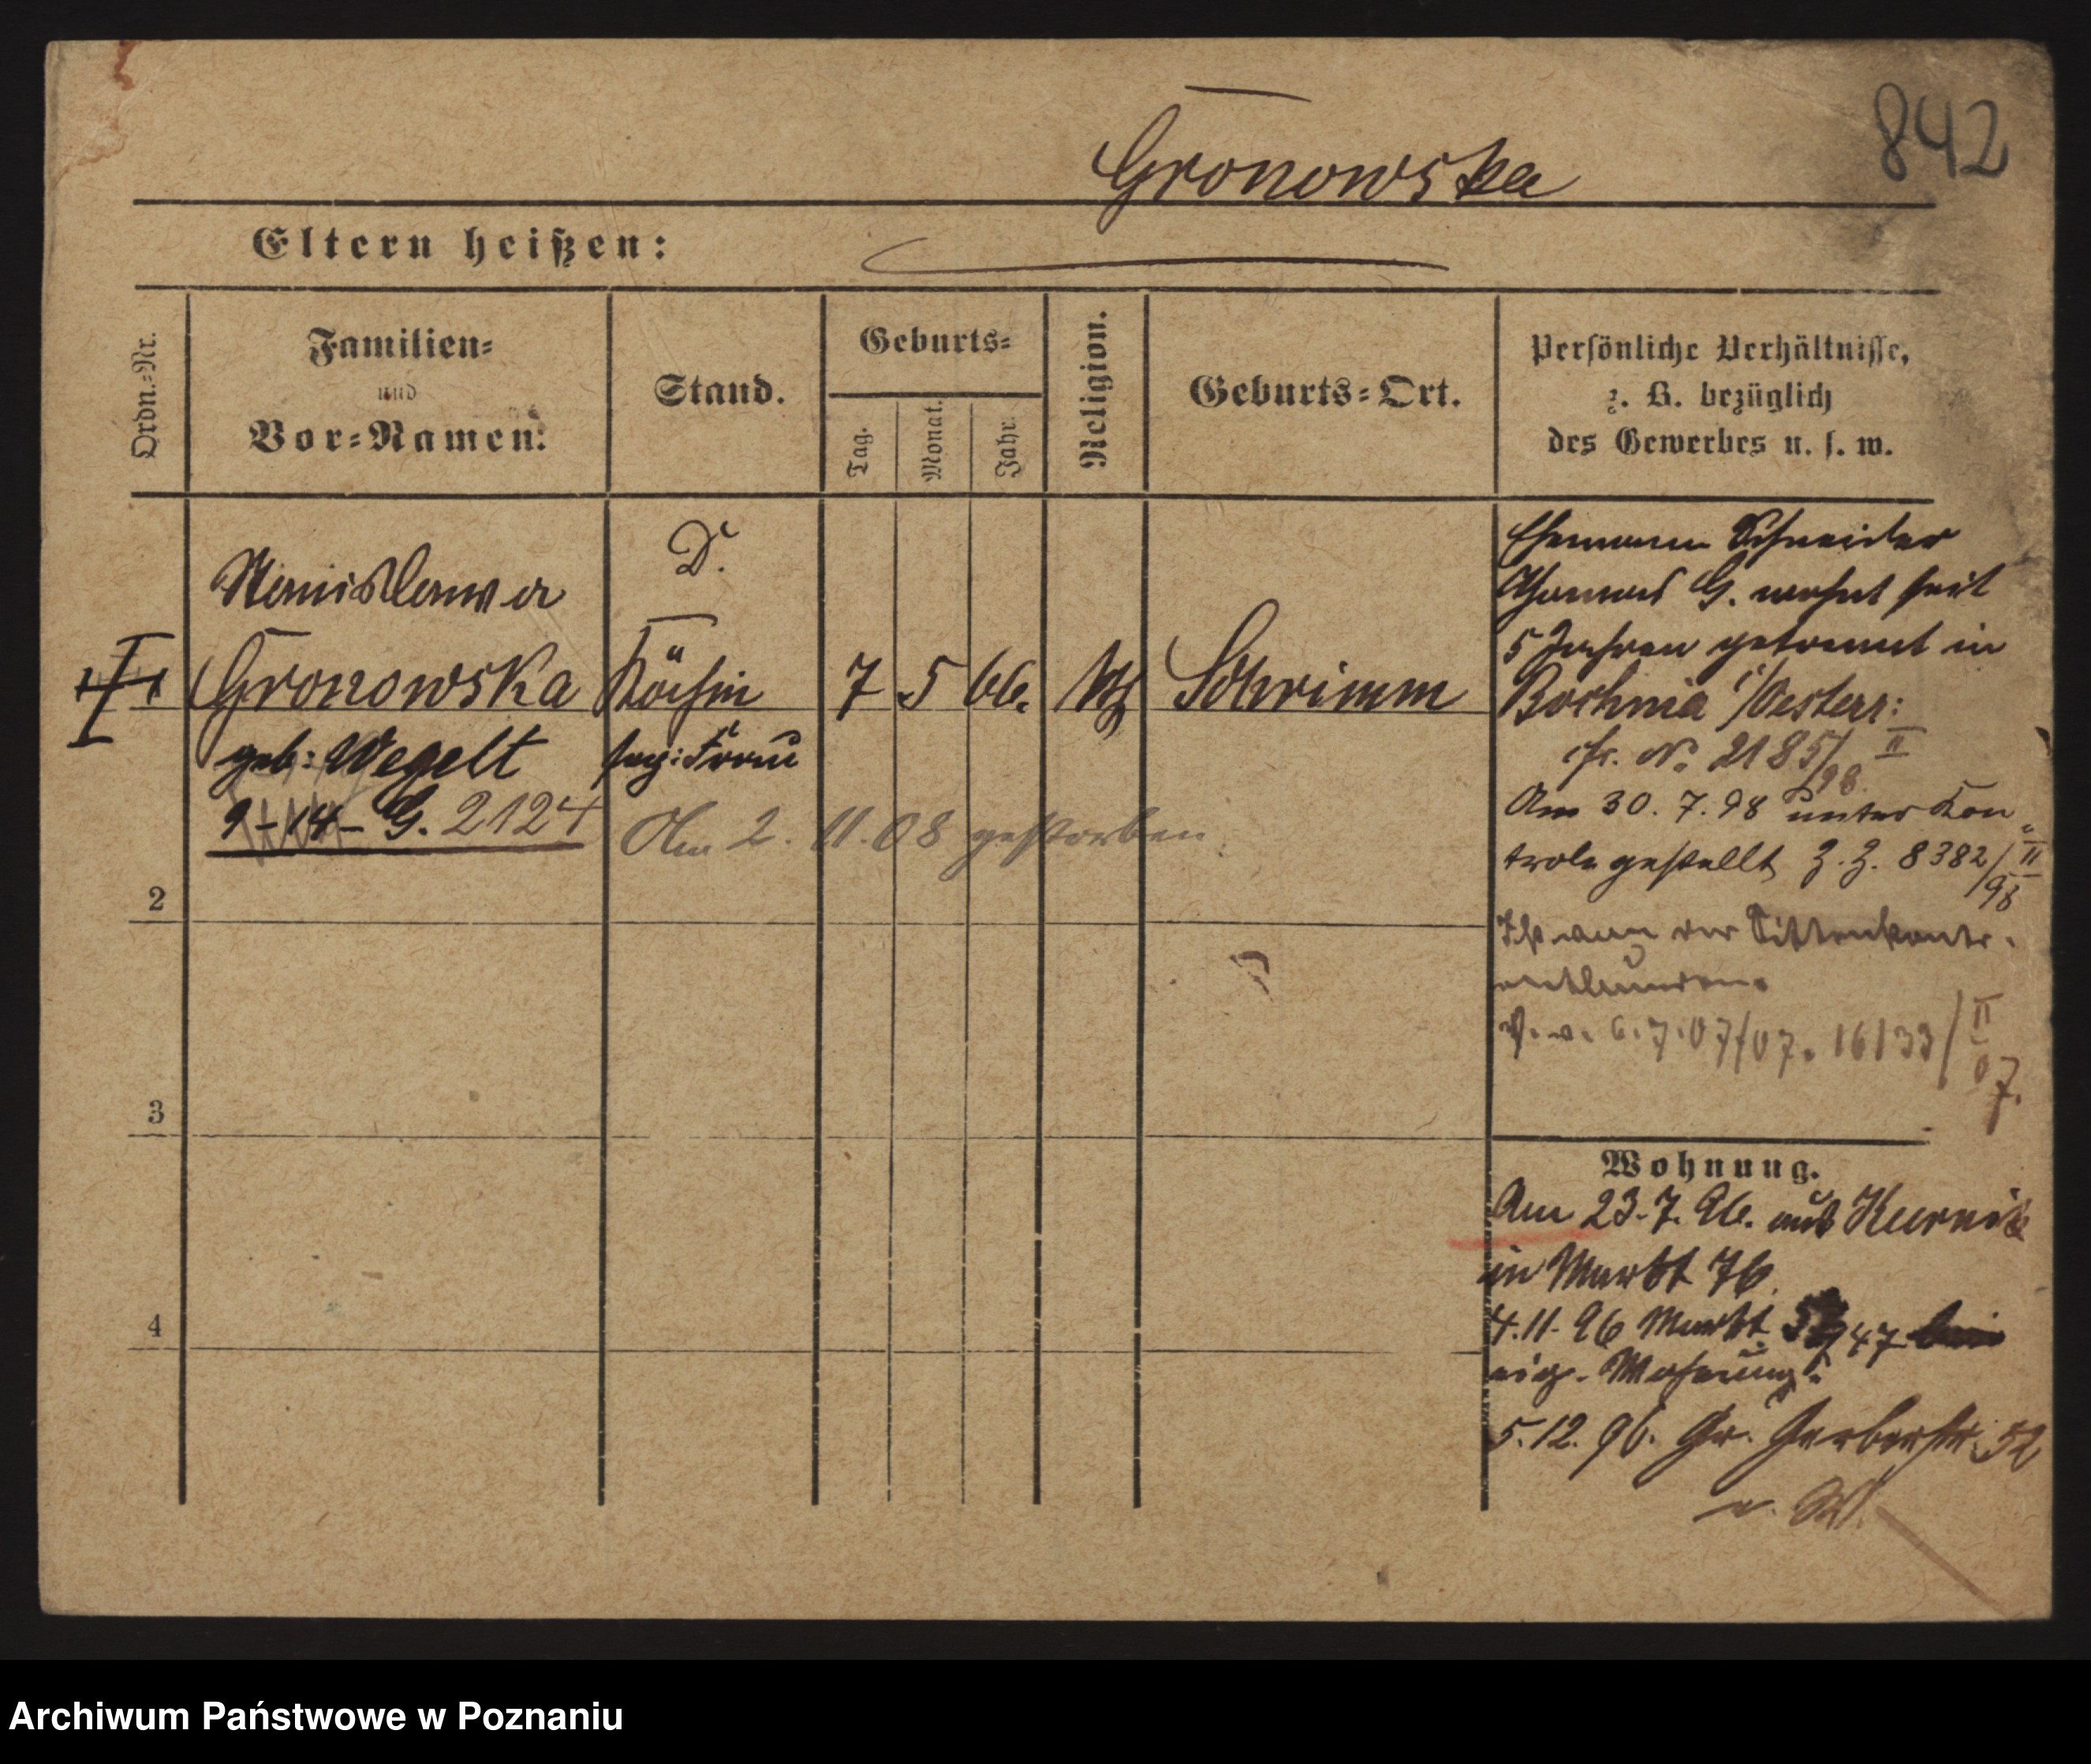 842
Gronowska
Eltern heißen:
Ordn.-Nr.
Familien-
und
Vor-Namen:
Stand.
Geburts-
Tag.
Monat.
Jahr.
Religion.
Geburts-Ort.
Persönliche Verhältnisse,
z. B. bezüglich
des Gewerbes u. s. w.
Stanislawa
Gronowska
geb: Wegelt
9-14- G. 2124
D.
Köchin
sep: Frau
7 5 66.
Schrimm
Am 2. 11. 08 gestorben.
Ehemann Schneider
Thomas G. wohnt seit
5 Jahren getrennt in
Bochnia i/Oesterr:
cfr. No 2185/98 II
Am 30. 7. 98 unter Kon-
trole gestellt Z. Z. 8382/98 II
Ist aus der Sittenkontr.
entlassen.
6.7.07/07. 16133/07. II
2
3
4
Wohnung.
Am 23. 7. 96. aus Kurnik
in Markt 76.
4. 11. 96 Markt 47
eig. Wohnung.
5. 12. 96. Gr. Gerberstr. 52
Archiwum Państwowe w Poznaniu